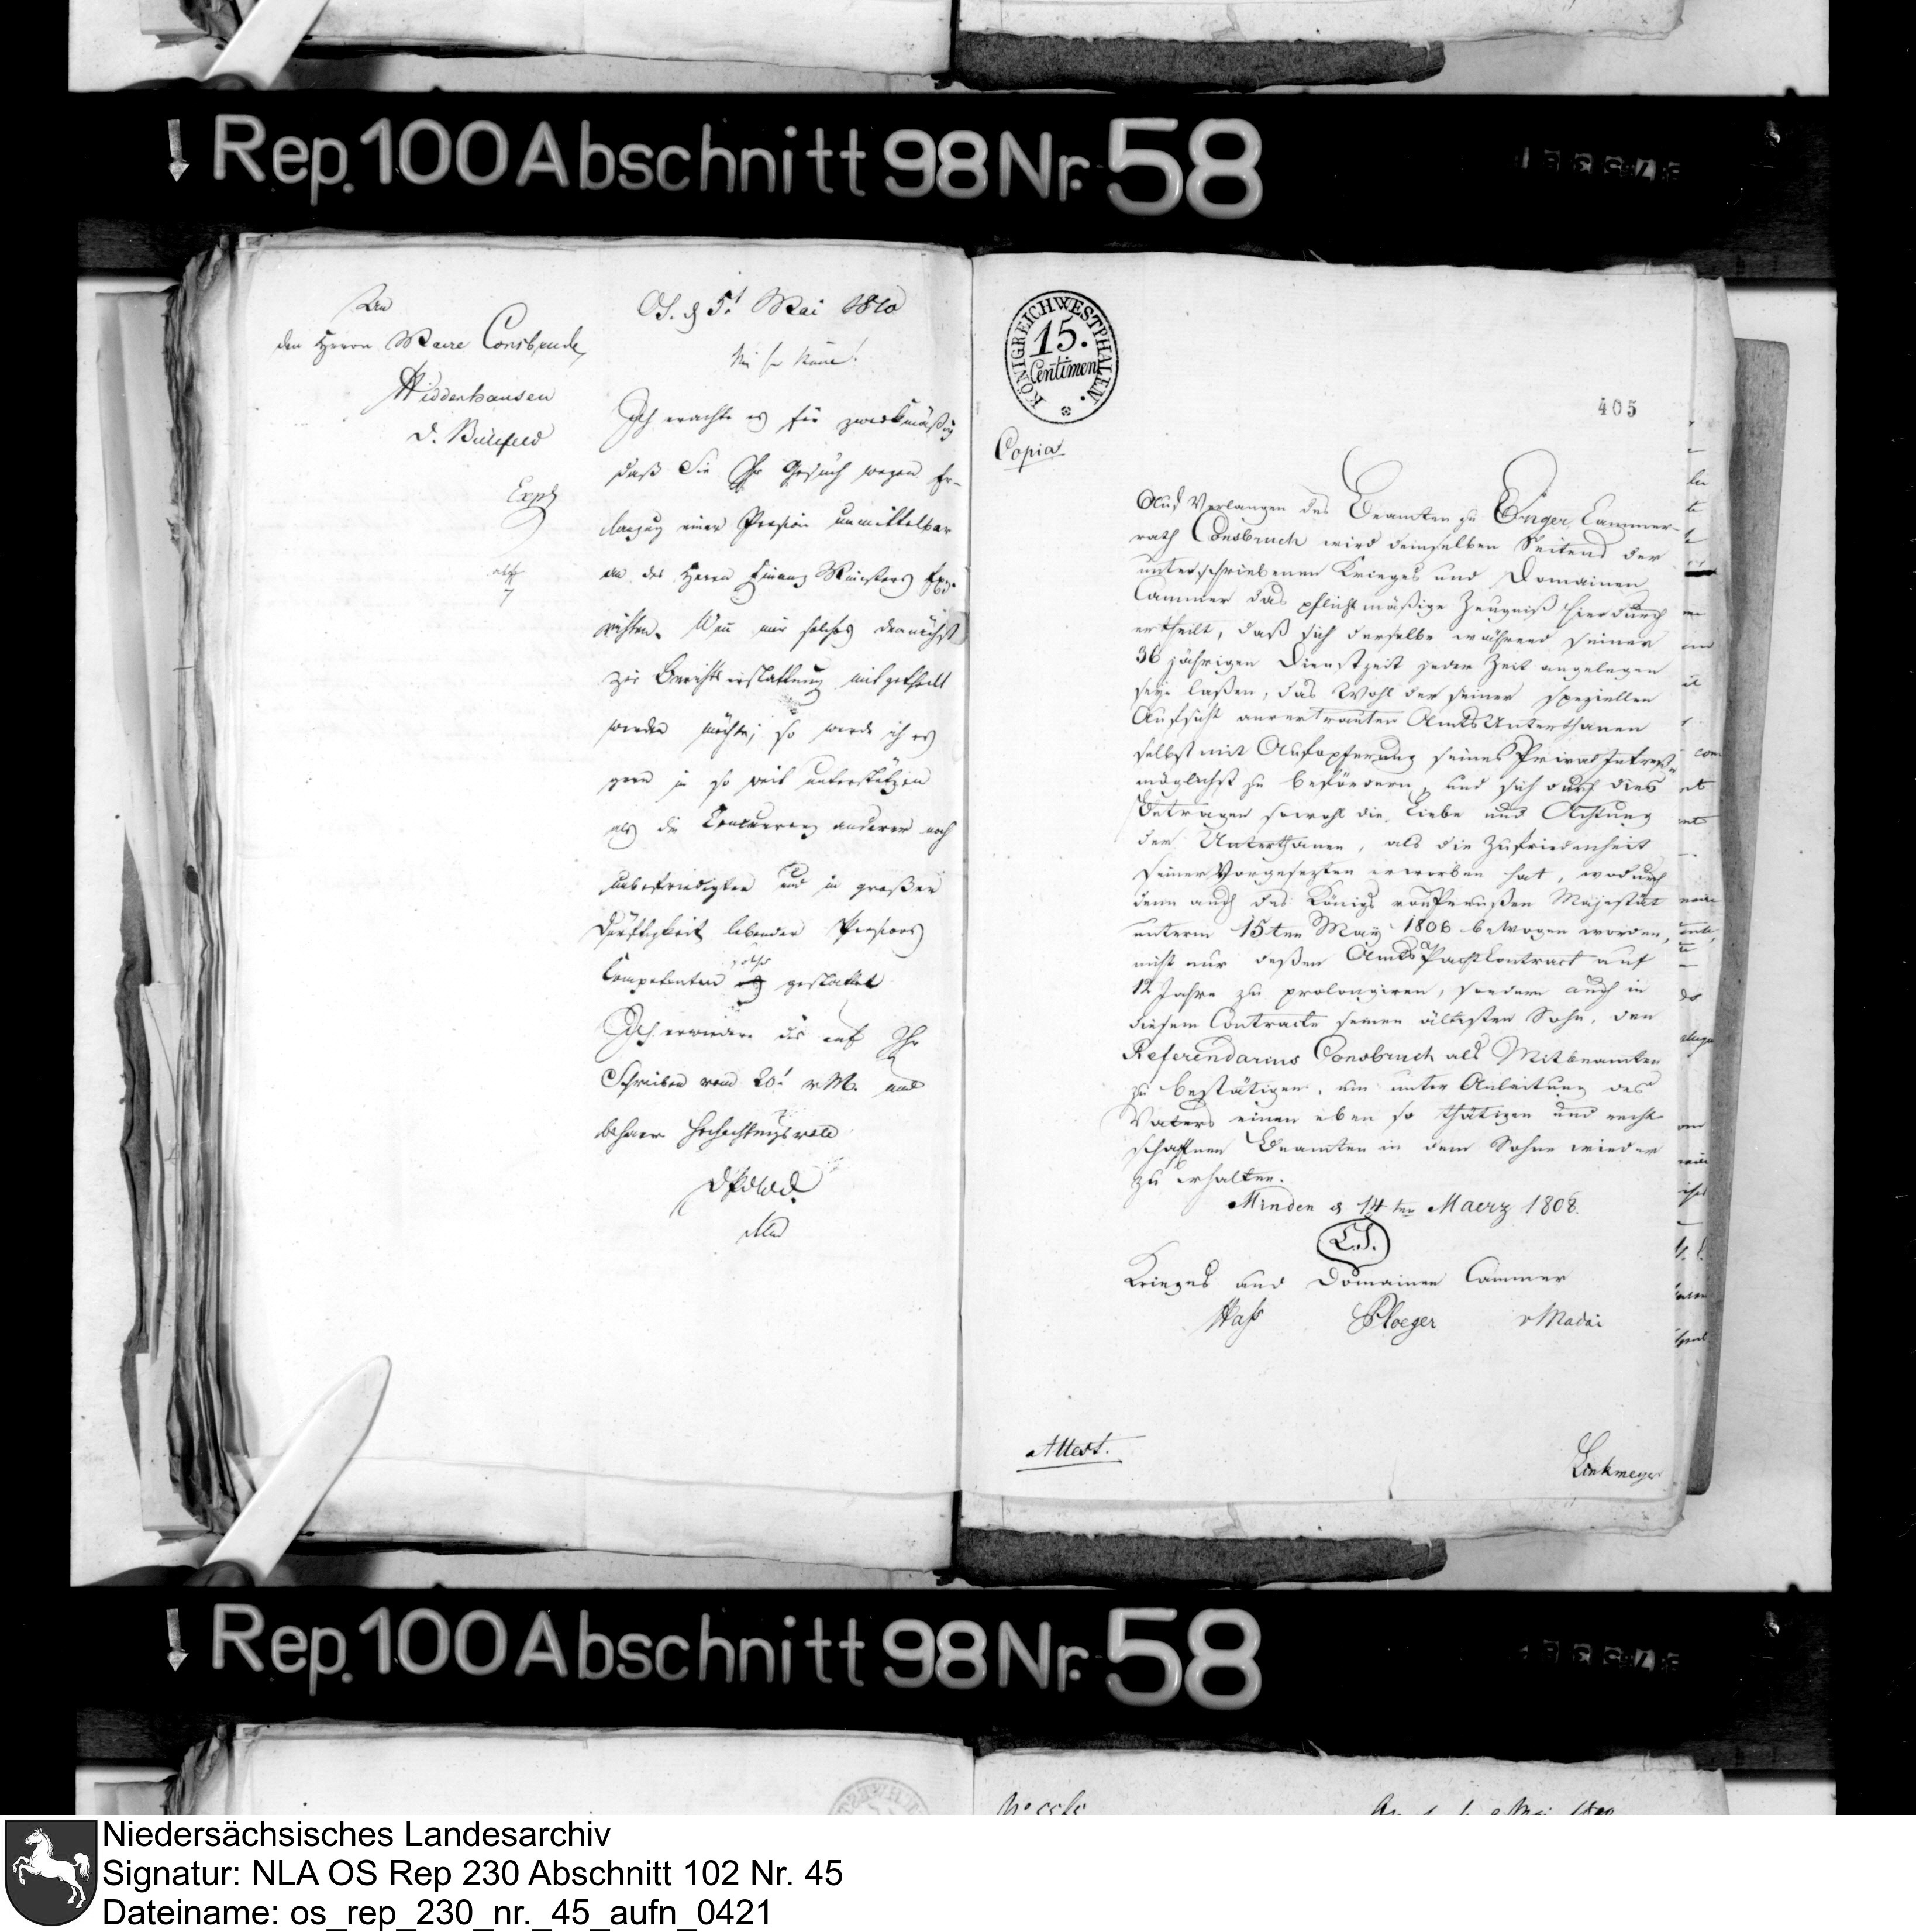 Rep. 100 Abschnitt 98 Nr. 58
An
den Herrn Maire Consbruch
Hiddenhausen
d. Bielefeld
Exp
Os. d 5t Mai 1810
Ich erachte es für zweckmäßig
daß Sie Ihr Gesuch wegen Er-
langung einer Pension unmittelbar
an des Herrn Finanz Ministers Exz.
richten. Wenn mir solches demnächst
zur Berichtserstattung mitgetheilt
werden möchte, so werde ich es
gern in so weit unterstützen
als die Concurrenz anderer noch
unbefriedigter und in großer
Dürftigkeit lebender Pensions
Competenten solches gestattet
Ich erwiedere dies auf Ihr
Schreiben vom 20t v M. und
beharre hochachtungsvoll
KÖNIGREICH WESTPHALEN.
15.
Centimen
405
Copia
Auf Verlangen des Beamten zu Enger, Cammer-
rath Consbruch wird demselben Seitens der
unterschriebenen Krieges und Domainen
Cammer das pflichtmäßige Zeugniß hierdurch
ertheilt, daß sich derselbe während seiner
36 jährigen Dienstzeit jeder Zeit angelegen
seyn laßen, das Wohl der seiner speziellen
Aufsicht anvertrauten Amts Unterthanen
selbst mit Aufopferung seines Privat Intreße
möglichst zu befördern, und sich durch dies
Betragen sowohl die Liebe und Achtung
der Unterthanen, als die Zufriedenheit
seiner Vorgesezten erworben hat, wodurch
denn auch des Königs von Preußen Majestät
unterm 15ten May 1806 bewogen worden,
nicht nur deßen Amts Pacht Contract auf
12 Jahre zu prolongiren, sondern auch in
diesem Contracte seinen ältesten Sohn, den
Referendarius Consbruch als Mitbeamten
zu bestätigen, um unter Anleitung des
Vaters einen eben so thätigen und recht
schaffnen Beamten in dem Sohne wieder
zu erhalten.
Minden d 14ten Maerz 1808.
L.S.
Krieges und Domainen Cammer
Haß Ploeger v Madai
Attest.
Linkmeyer
Rep. 100 Abschnitt 98 Nr. 58
Niedersächsisches Landesarchiv
Signatur: NLA OS Rep 230 Abschnitt 102 Nr. 45
Dateiname: os_rep_230_nr._45_aufn_0421